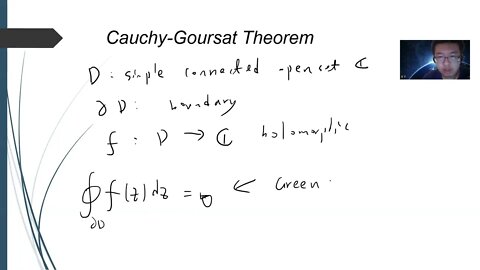 Cauchy-Goursat Theorem
D : simple connected open set ℂ
∂D : boundary
f : D → ℂ holomorphic
∮∂D f(z) dz = 0 ← Green.